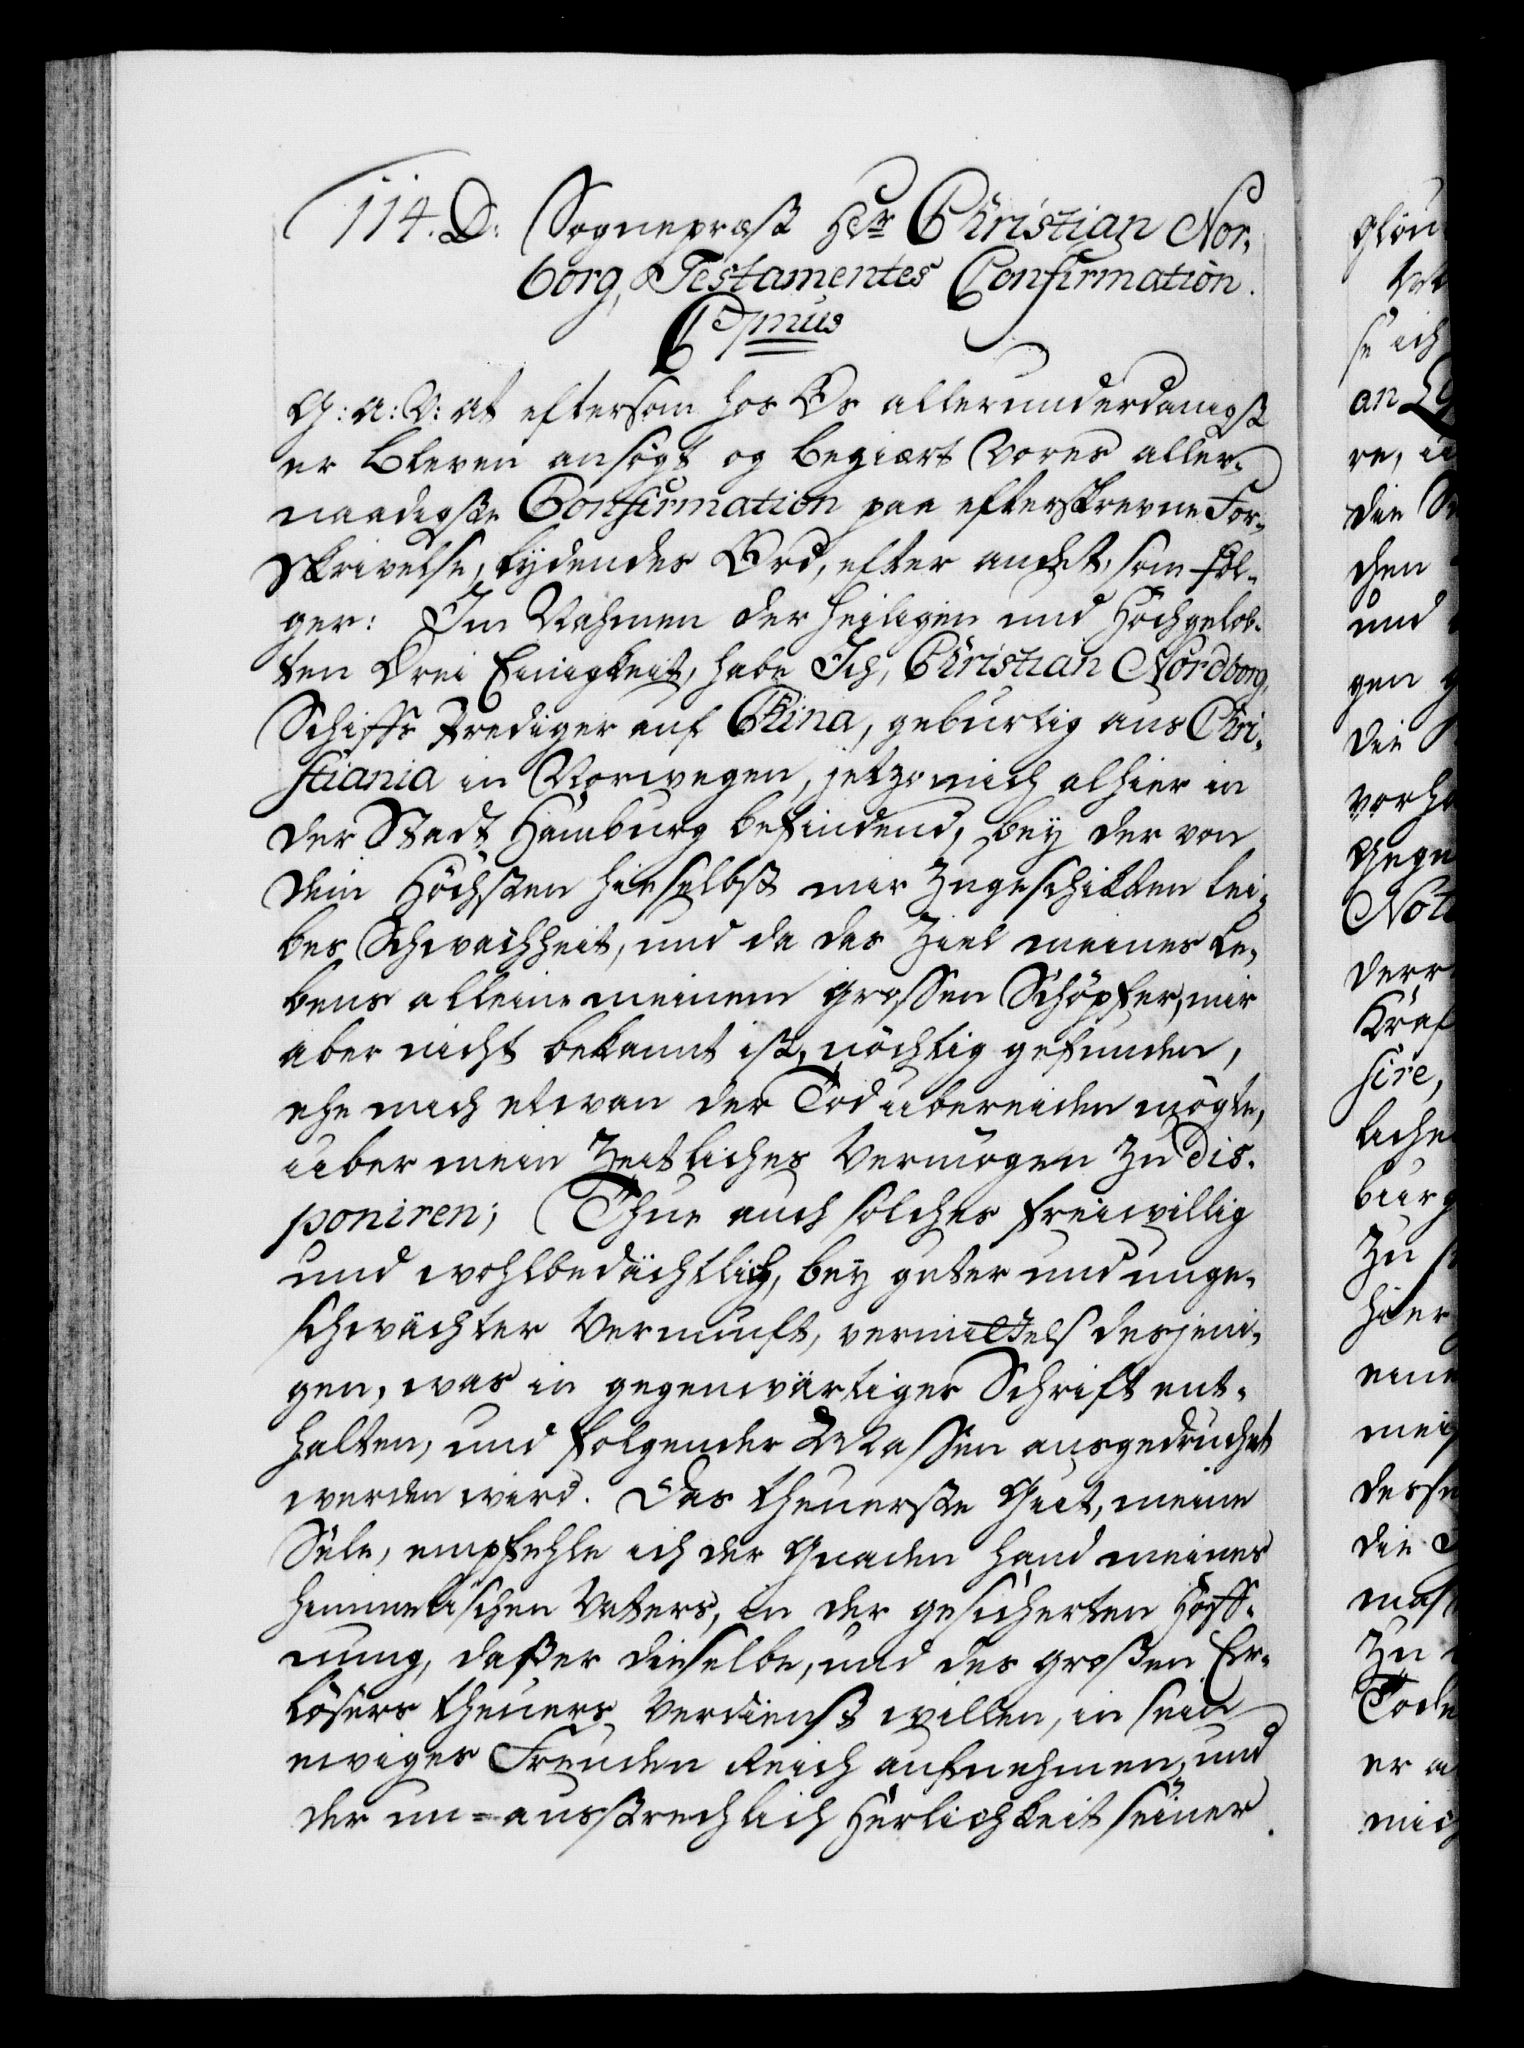 114. D. Sognepræst Hr Christian Nor-
borg, Testamentes Confirmation.
C 7mus
G: A: V: At eftersom hos Os allerunderdanigst
er bleven ansögt og begiært Vores aller-
naadigste Confirmation paa efterskrevne For-
skrivelse, lydendes Ord, efter andet, som föl-
ger: Im Nahmen der heiligen und Hochgelob-
ten Drei Einigkeit, habe Ich, Christian Nordborg,
Schiffs Prediger auf China, geburtig aus Chri-
stiania in Norwegen, jetzo mich alhier in
der Stadt Hamburg befindend, bey der von
dem Höchsten hieselbst mir zugeschikten Lei-
bes Schwachheit, und da das Ziel meines Le-
bens alleine meinem grossen Schöpfer, mir
aber nicht bekannt ist, nöchtig gefunden,
ehe mich etwan der Tod ubereiden mögte,
uber mein Zeitliches Vermögen zu dis-
poniren; Thue auch solches freiwillig
und wohlbedächtlich, bey guter und unge-
schwächter Vernunft, vermittels desjeni-
gen, was in gegenwärtiger Schrift ent-
halten, und folgender Massen ausgedrucket
werden wird. Das theuerste Gut, meine
Sele, empfehle ich der Gnaden Hand meines
himmelischen Vaters, in der gesicherten Hoff-
nung, daßer dieselbe, und des großen Er-
lösers theuers Verdienst willen, in sein
ewiges Freuden Reich aufnehmen, und
der un-aussprechlich Herlichkeit seiner